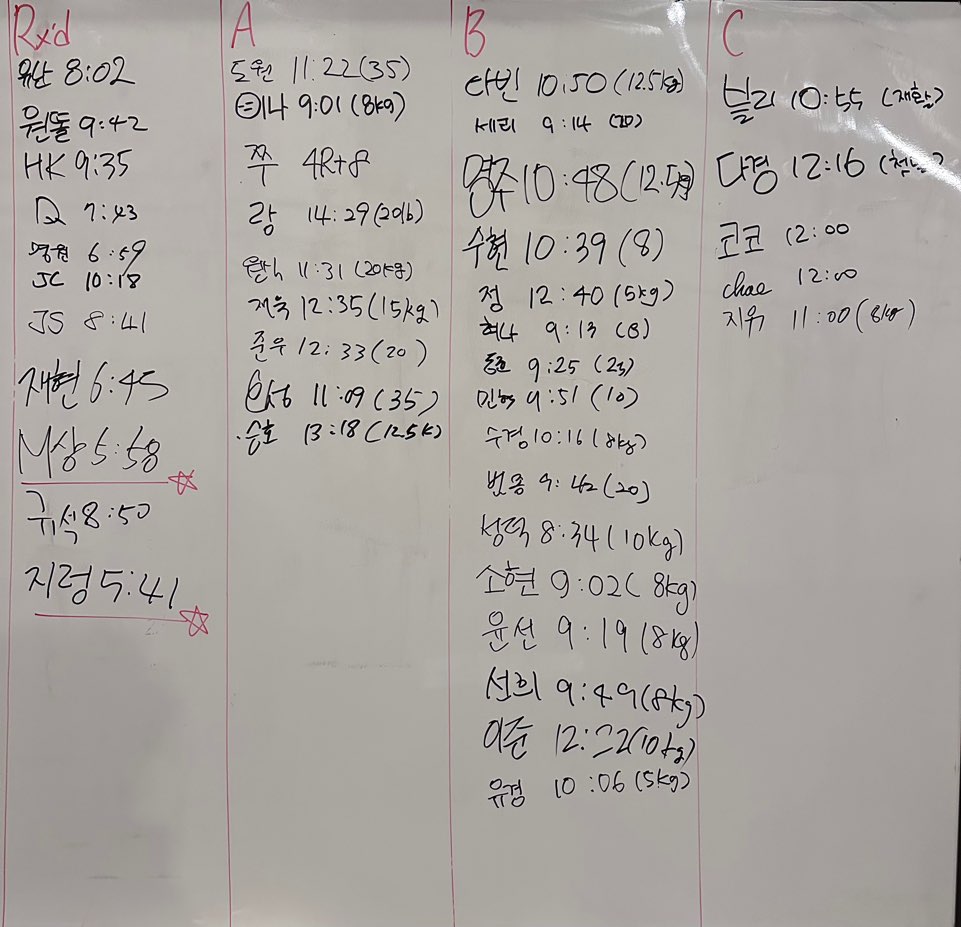 Rx'd
유산 8:02
원돌 9:42
HK 9:35
DQ 7:43
명원 6:59
JC 10:18
JS 8:41
재현 6:45
M상 5:58
귀석 8:50
지렁 5:41
A
도원 11:22 (35)
미나 9:01 (8kg)
쭈 4R+8
랑 14:29 (20lb)
11:31 (20kg)
재욱 12:35 (15kg)
준우 12:33 (20)
11:09 (35)
승호 13:18 (12.5k)
B
다빈 10:50 (12.5kg)
세리 9:14 (20)
명주 10:48 (12.5)
수현 10:39 (8)
정 12:40 (5kg)
혜나 9:13 (8)
9:25 (23)
민혁 9:51 (10)
수경 10:16 (8kg)
번홍 9:42 (20)
성덕 8:34 (10kg)
소현 9:02 (8kg)
윤선 9:19 (8kg)
선희 9:49 (8kg)
이준 12:22 (10kg)
유경 10:06 (5kg)
C
블리 10:55 (재활)
다경 12:16
코코 12:00
chae 12:00
지위 11:00 (8kg)